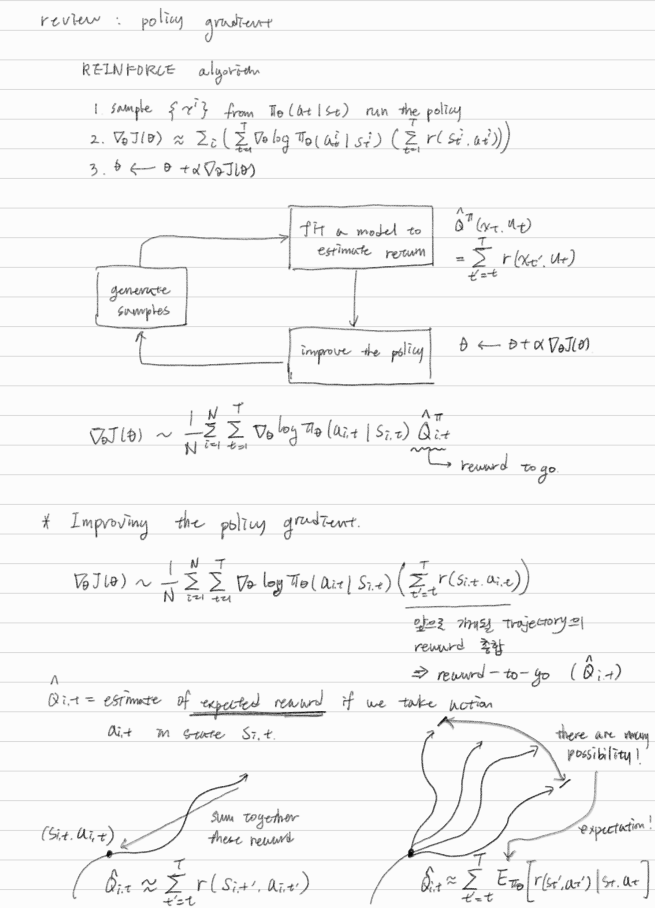 review : policy gradient
REINFORCE algorithm
1 sample {τ^i} from π_θ(a_t|s_t) run the policy
2. ∇_θJ(θ) ≈ Σ_i (Σ_{t=1}^T ∇_θ log π_θ(a_t^i|s_t^i) (Σ_{t=1}^T r(s_t^i, a_t^i)))
3. θ ← θ + α∇_θJ(θ)
fit a model to
estimate return
Q̂^π(x_t, u_t)
= Σ_{t'=t}^T r(x_t', u_t)
generate
samples
improve the policy
θ ← θ + α∇_θJ(θ)
∇_θJ(θ) ~ 1/N Σ_{i=1}^N Σ_{t=1}^T ∇_θ log π_θ(a_{i,t}|s_{i,t}) Q̂^π_{i,t}
→ reward to go.
* Improving the policy gradient.
∇_θJ(θ) ~ 1/N Σ_{i=1}^N Σ_{t=1}^T ∇_θ log π_θ(a_{i,t}|s_{i,t}) (Σ_{t'=t}^T r(s_{i,t}, a_{i,t}))
앞으로 trajectory의
reward 총합
⇒ reward-to-go (Q̂_{i,t})
Q̂_{i,t} = estimate of expected reward if we take action
a_{i,t} in state s_{i,t}.
there are many
possibility!
sum together
these reward
(s_{i,t}, a_{i,t})
expectation!
Q̂_{i,t} ≈ Σ_{t'=t}^T r(s_{i,t'}, a_{i,t'})
Q̂_{i,t} ≈ Σ_{t'=t}^T E_{π_θ}[r(s_t', a_t')|s_t, a_t]